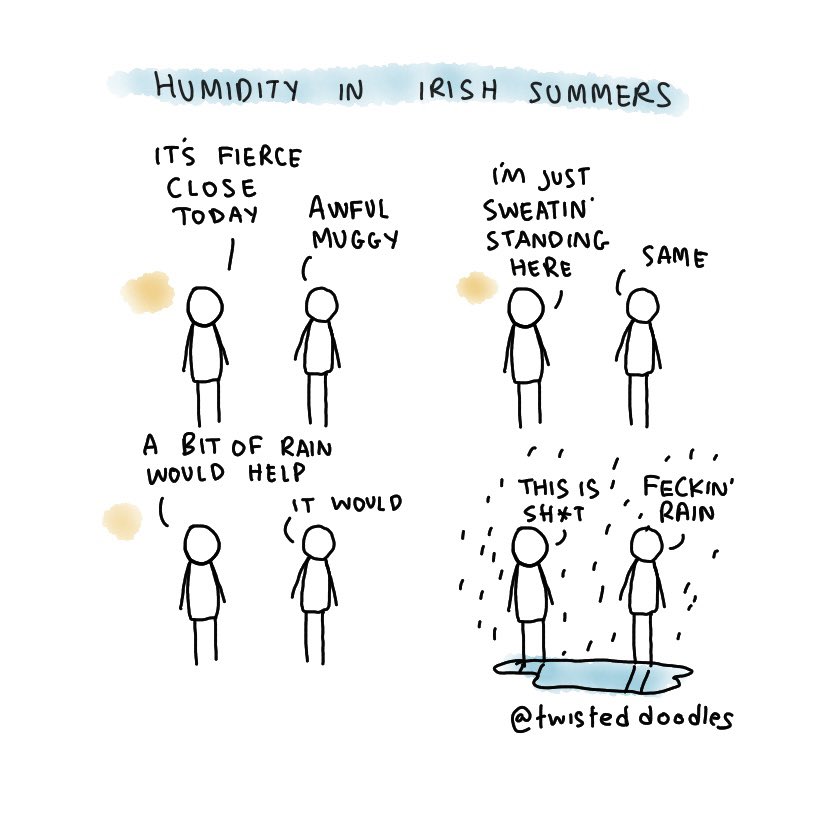 HUMIDITY IN IRISH SUMMERS
IT'S FIERCE
CLOSE
TODAY
AWFUL
MUGGY
I'M JUST
SWEATIN'
STANDING
HERE
SAME
A BIT OF RAIN
WOULD HELP
IT WOULD
THIS IS
SH*T
FECKIN'
RAIN
@twisteddoodles